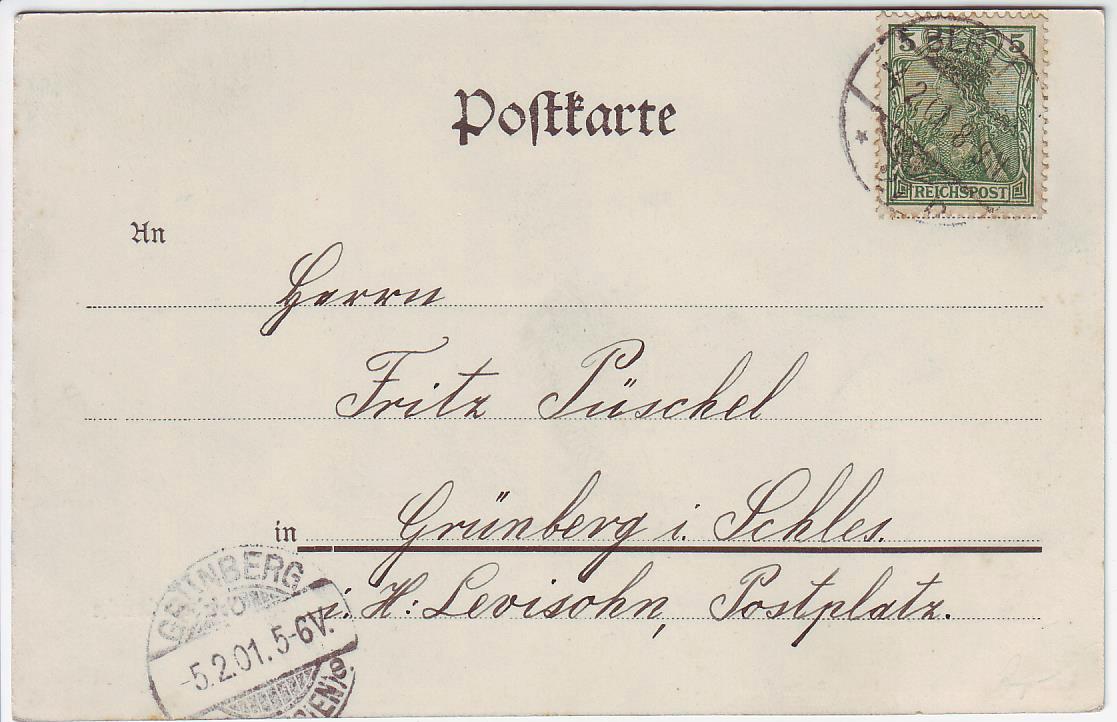 Postkarte
5 5
REICHSPOST
An
Herrn
Fritz Püschel
in Grünberg i. Schles.
i. H: Levisohn, Postplatz.
GRÜNBERG
-5.2.01.5-6V.